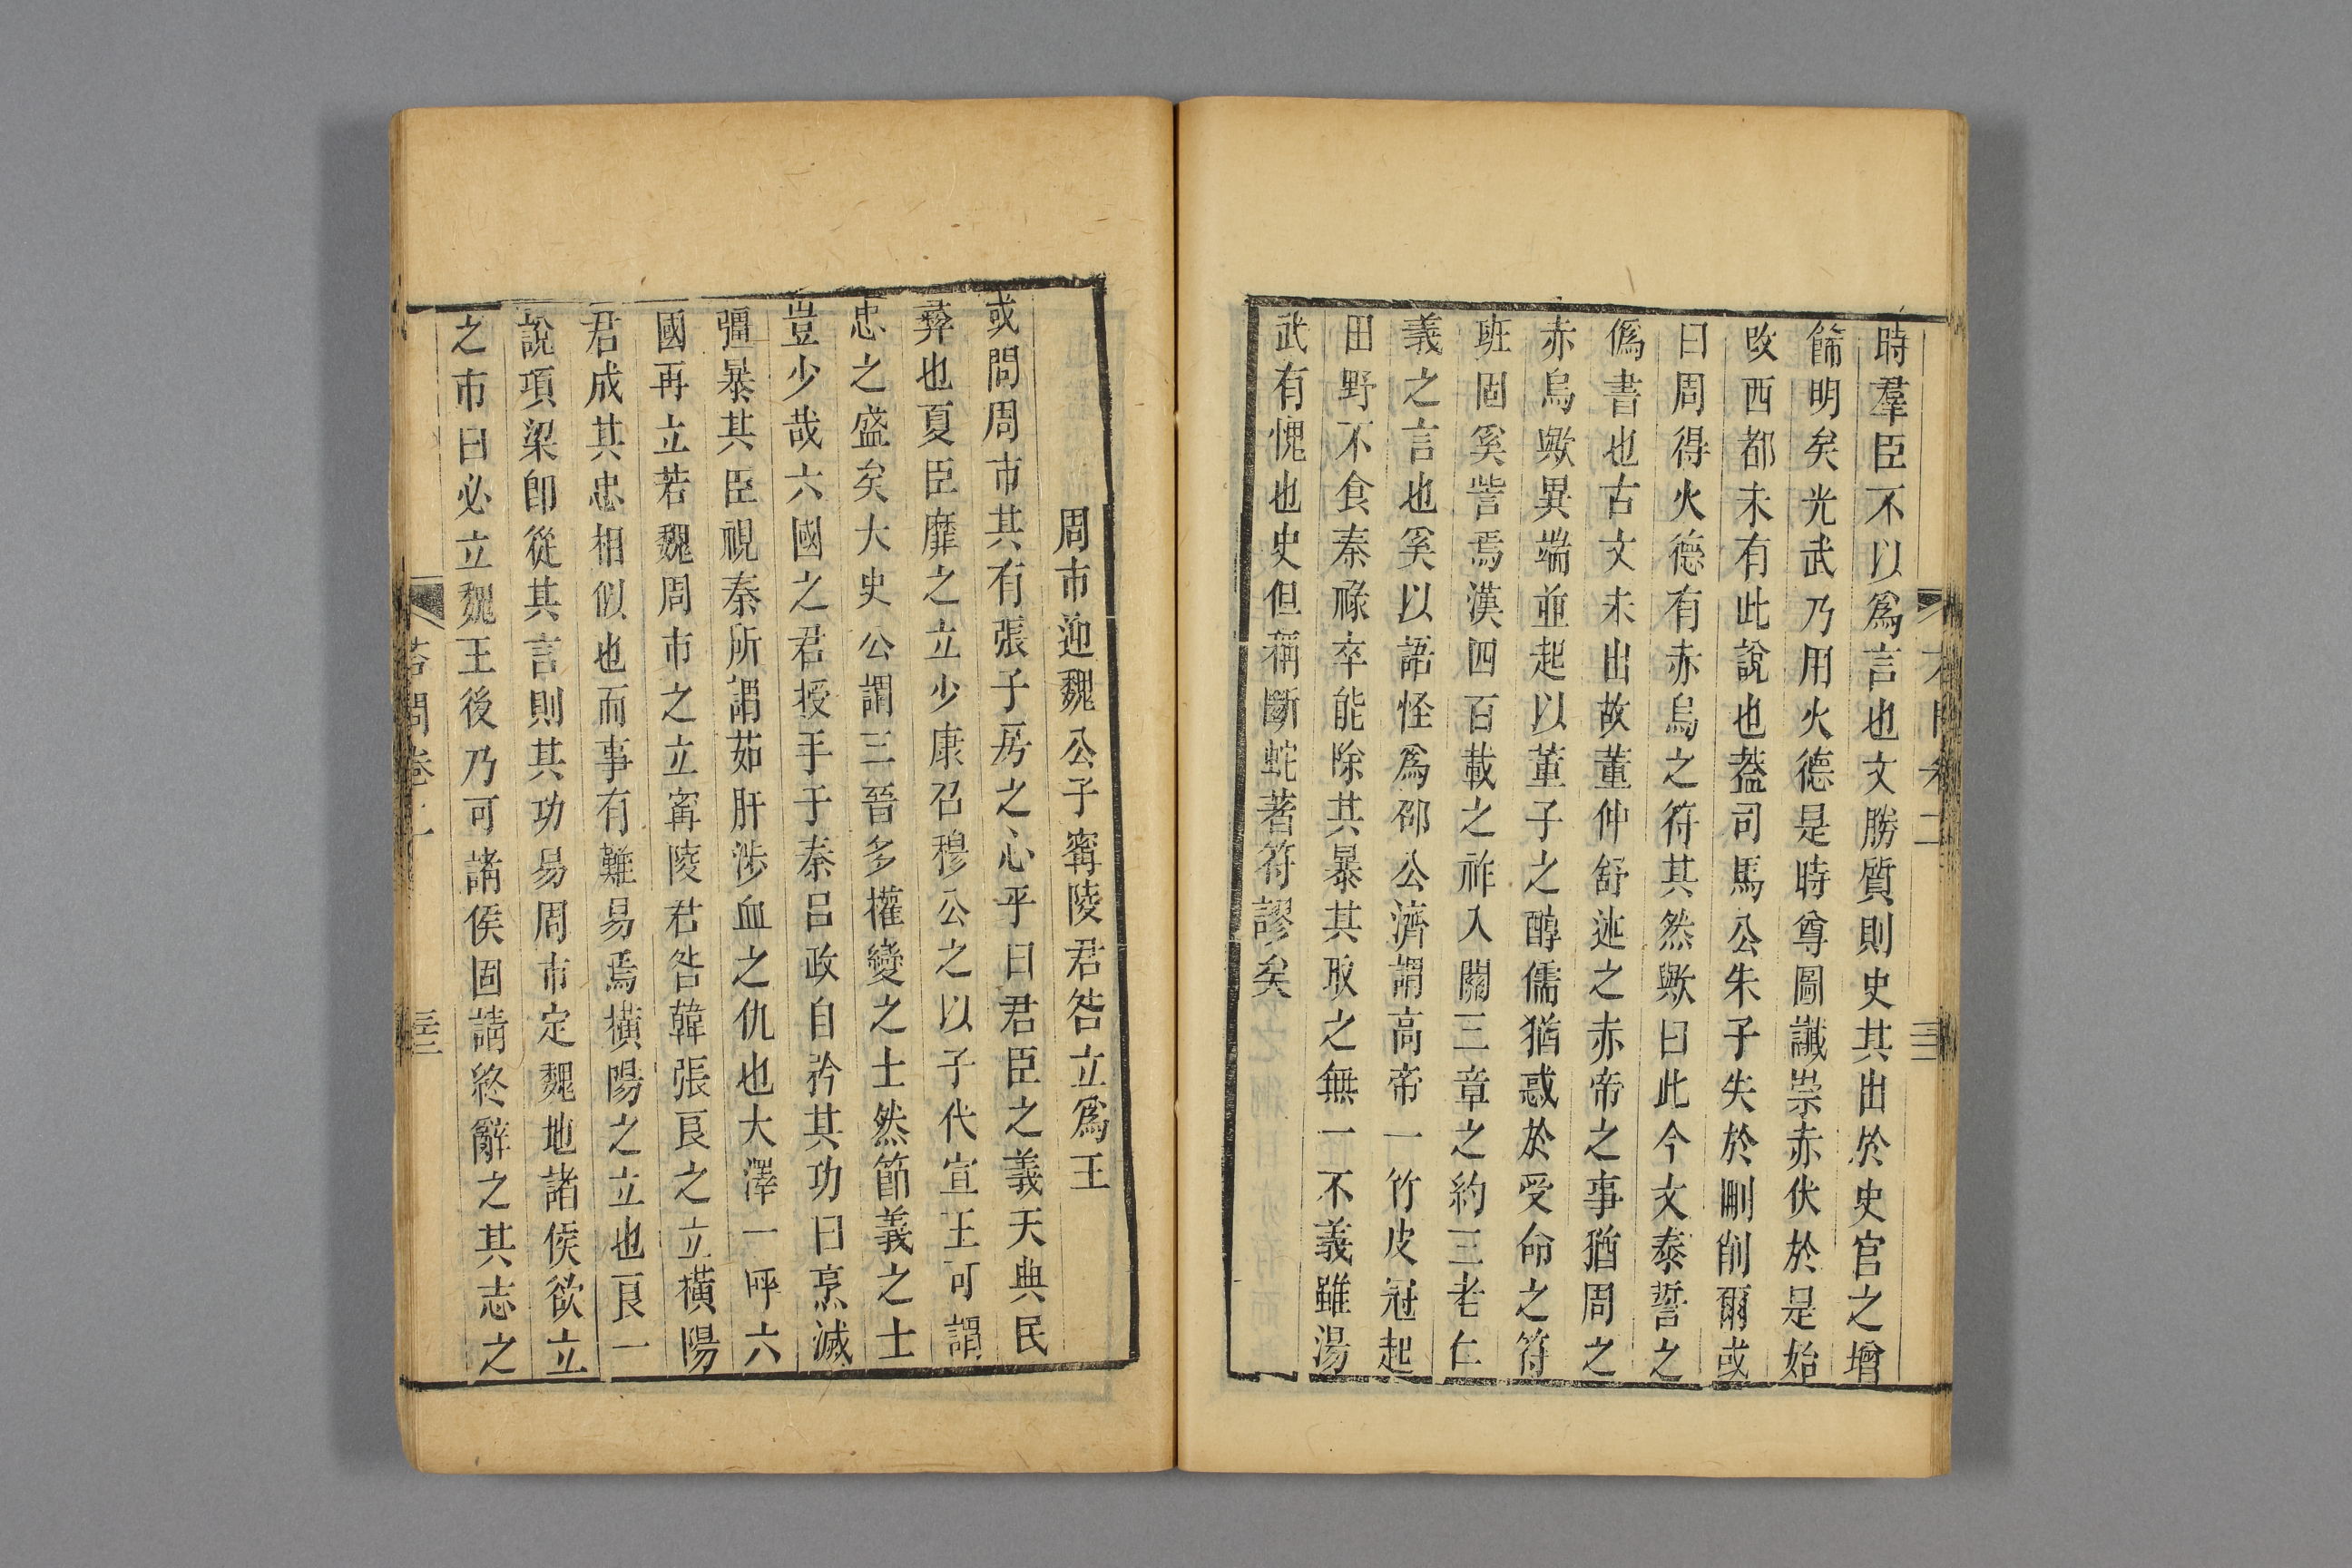 時羣臣不以爲言也文勝質則史其出於史官之增
餙明矣光武乃用火德是時尊圖讖崇赤伏於是始
改西都未有此說也葢司馬公朱子失於刪削爾或
曰周得火德有赤烏之符其然歟曰此今文泰誓之
僞書也古文未出故董仲舒述之赤帝之事猶周之
赤烏歟異端並起以董子之醇儒猶惑於受命之符
班固奚訾焉漢四百載之祚入關三章之約三老仁
義之言也奚以語怪爲邵公濟謂高帝一竹皮冠起
田野不食秦祿卒能除其暴其取之無一不義雖湯
武有愧也史但稱斷蛇著符謬矣
周市迎魏公子甯陵君咎立爲王
或問周市其有張子房之心乎曰君臣之義天典民
彛也夏臣靡之立少康召穆公之以子代宣王可謂
忠之盛矣大史公謂三晉多權變之士然節義之士
豈少哉六國之君授手于秦呂政自矜其功曰烹滅
彊暴其臣視秦所謂茹肝涉血之仇也大澤一呼六
國再立若魏周市之立甯陵君咎韓張良之立橫陽
君成其忠相似也而事有難易焉橫陽之立也良一
說項梁卽從其言則其功易周市定魏地諸侯欲立
之市曰必立魏王後乃可諸侯固請終辭之其志之
荅問卷二